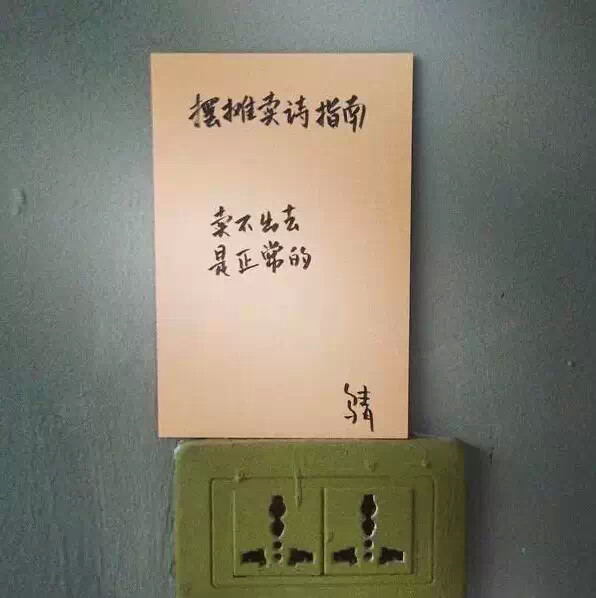 摆摊卖诗指南
卖不出去
是正常的
乌青